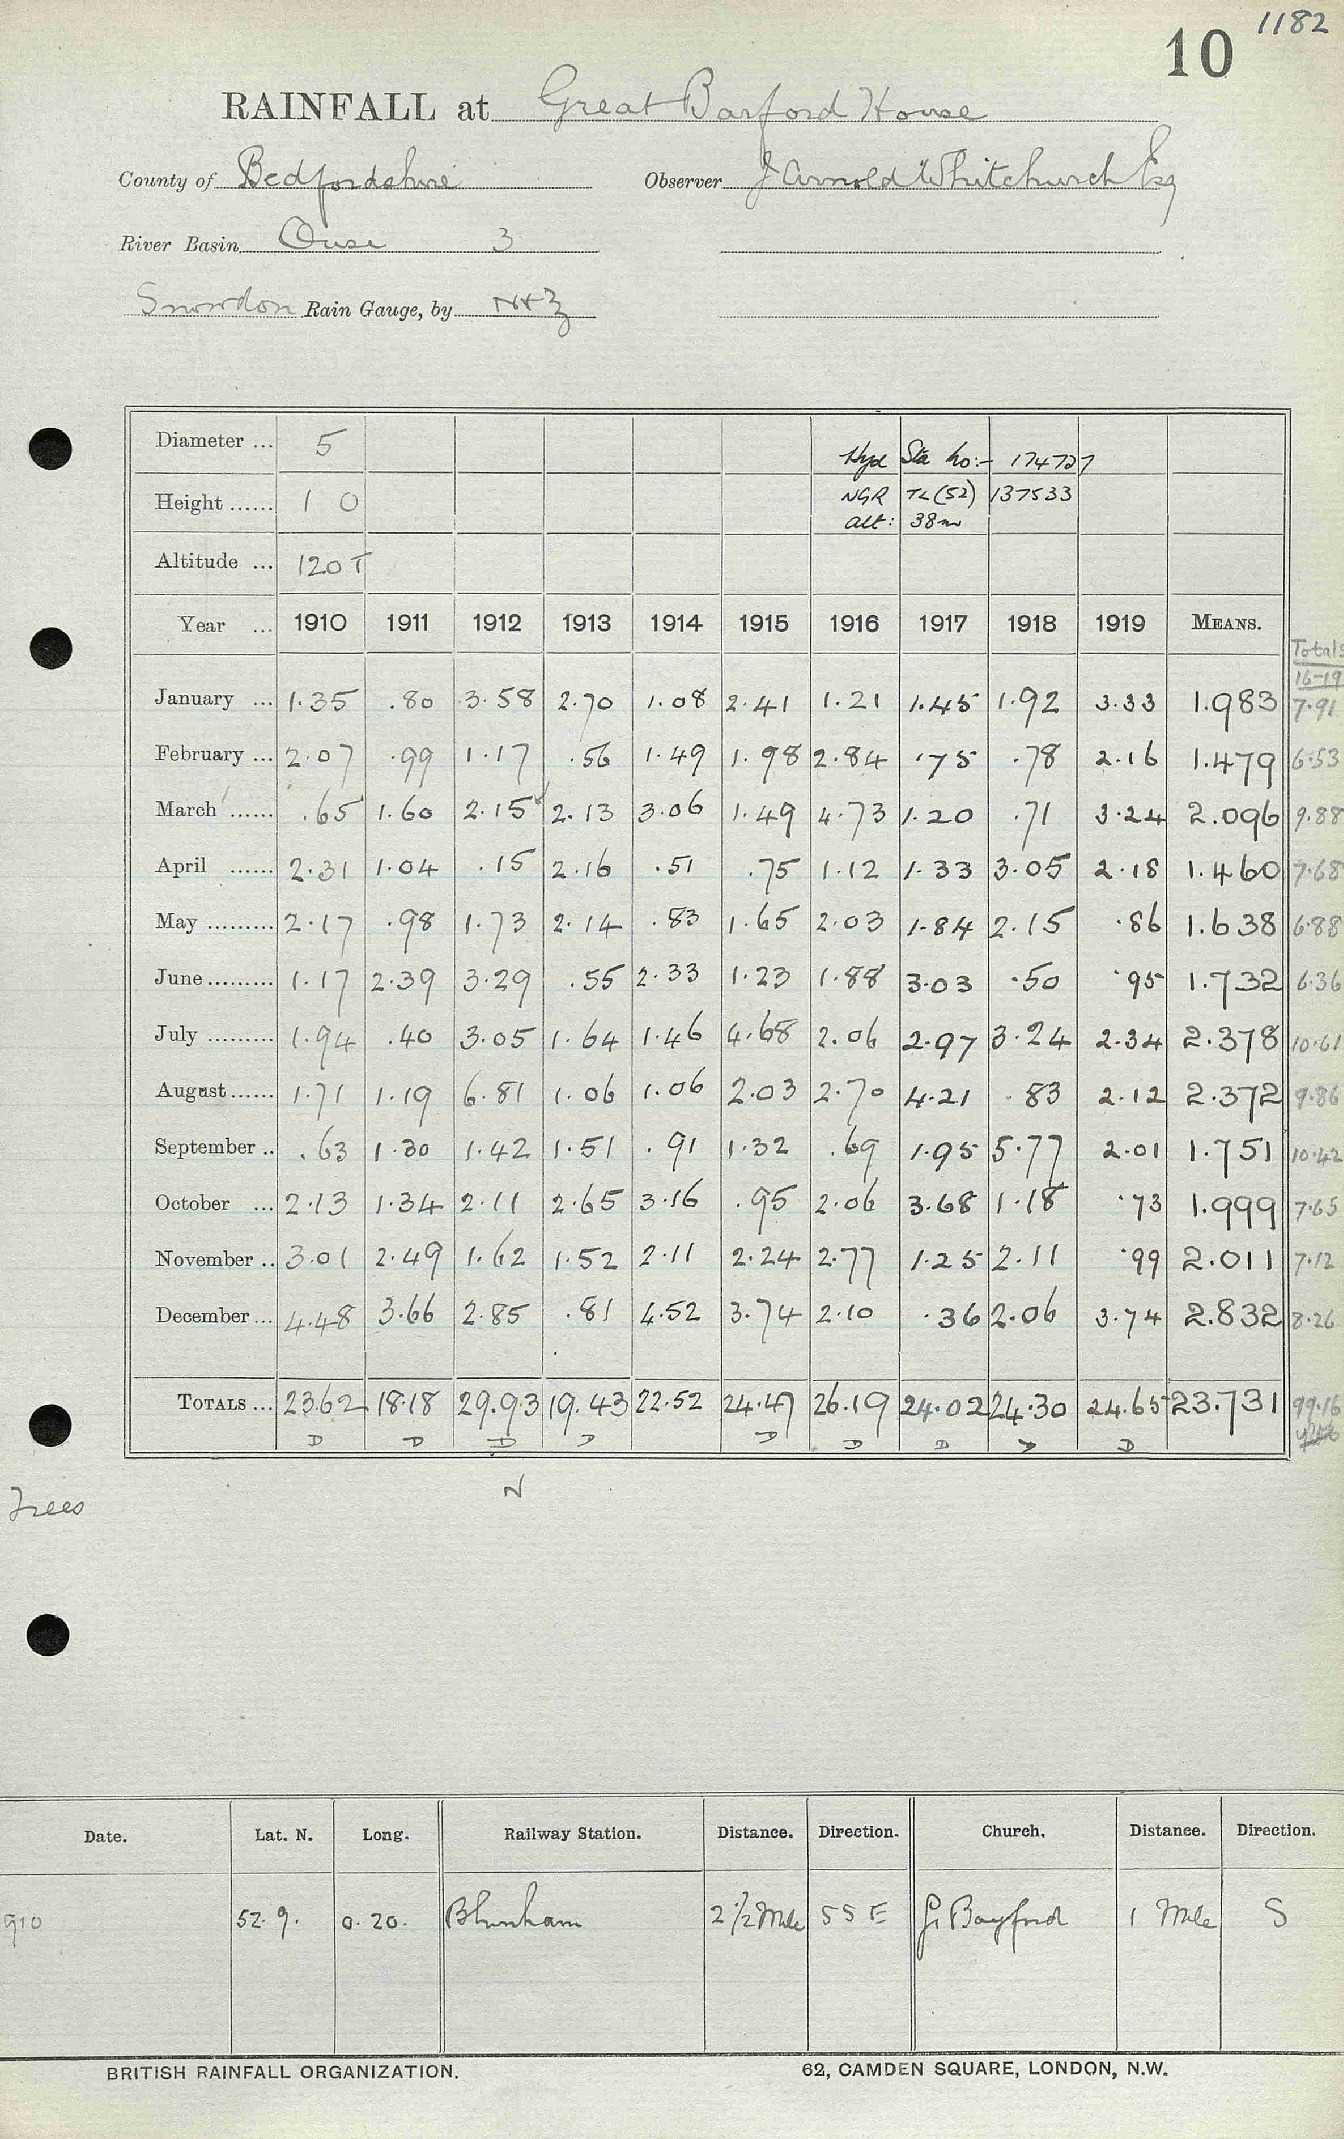 1182
10
RAINFALL at Great Barford House
County of Bedfordshire Observer J Arnold Whitchurch Esq
River Basin Ouse 3
Snowdon Rain Gauge, by N+Z
Diameter ... 5 Hyd Sta No:- 174727
Height ...... 1 0 NGR TL(52) 137533
alt: 38m
Altitude ... 120 T
Year ... 1910 1911 1912 1913 1914 1915 1916 1917 1918 1919 MEANS.
Totals
16-19
January ... 1.35 .80 3.58 2.70 1.08 2.41 1.21 1.45 1.92 3.33 1.983 7.91
February ... 2.07 .99 1.17 .56 1.49 1.98 2.84 .75 .78 2.16 1.479 6.53
March ...... .65 1.60 2.15 2.13 3.06 1.49 4.73 1.20 .71 3.24 2.096 9.88
April ...... 2.31 1.04 .15 2.16 .51 .75 1.12 1.33 3.05 2.18 1.460 7.68
May ......... 2.17 .98 1.73 2.14 .83 1.65 2.03 1.84 2.15 .86 1.638 6.88
June ......... 1.17 2.39 3.29 .55 2.33 1.23 1.88 3.03 .50 .95 1.732 6.36
July ......... 1.94 .40 3.05 1.64 1.46 4.68 2.06 2.97 3.24 2.34 2.378 10.61
August ...... 1.71 1.19 6.81 1.06 1.06 2.03 2.70 4.21 .83 2.12 2.372 9.86
September .. .63 1.30 1.42 1.51 .91 1.32 .69 1.95 5.77 2.01 1.751 10.42
October ... 2.13 1.34 2.11 2.65 3.16 .95 2.06 3.68 1.18 .73 1.999 7.65
November .. 3.01 2.49 1.62 1.52 2.11 2.24 2.77 1.25 2.11 .99 2.011 7.12
December ... 4.48 3.66 2.85 .81 4.52 3.74 2.10 .36 2.06 3.74 2.832 8.26
TOTALS ... 23.62 18.18 29.93 19.43 22.52 24.47 26.19 24.02 24.30 24.65 23.731 99.16
D D D D D D D D D
N
Trees
Date. Lat. N. Long. Railway Station. Distance. Direction. Church. Distance. Direction.
910 52. 9. 0. 20. Blunham 2 1/2 Mile SSE Gt Bayford 1 Mile S
BRITISH RAINFALL ORGANIZATION. 62, CAMDEN SQUARE, LONDON, N.W.